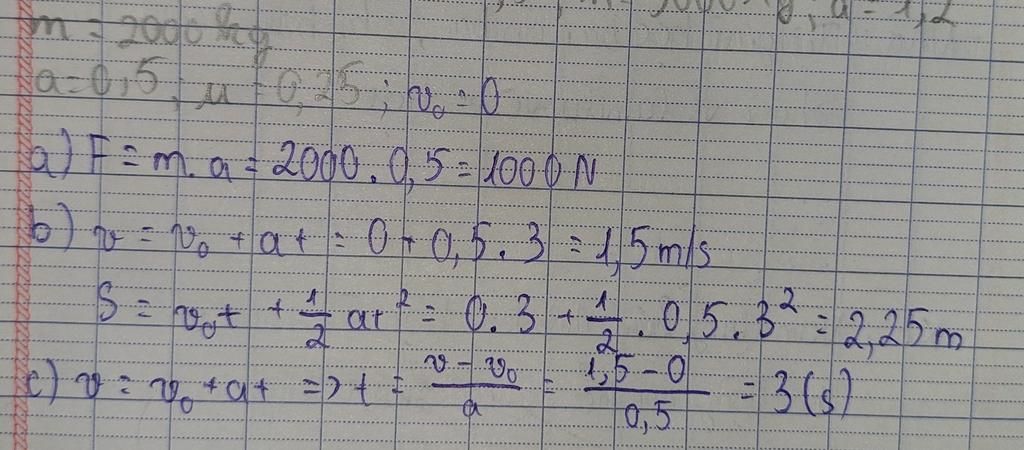 a = 1,2
m = 2000 kg
a = 0,5 ; μ = 0,25 ; v₀ = 0
a) F = m. a = 2000. 0,5 = 1000 N
b) v = v₀ + at = 0 + 0,5. 3 = 1,5 m/s
S = v₀t + 1/2 at² = 0. 3 + 1/2 . 0,5. 3² = 2,25 m
c) v = v₀ + at => t = (v - v₀)/a = (1,5 - 0)/0,5 = 3 (s)